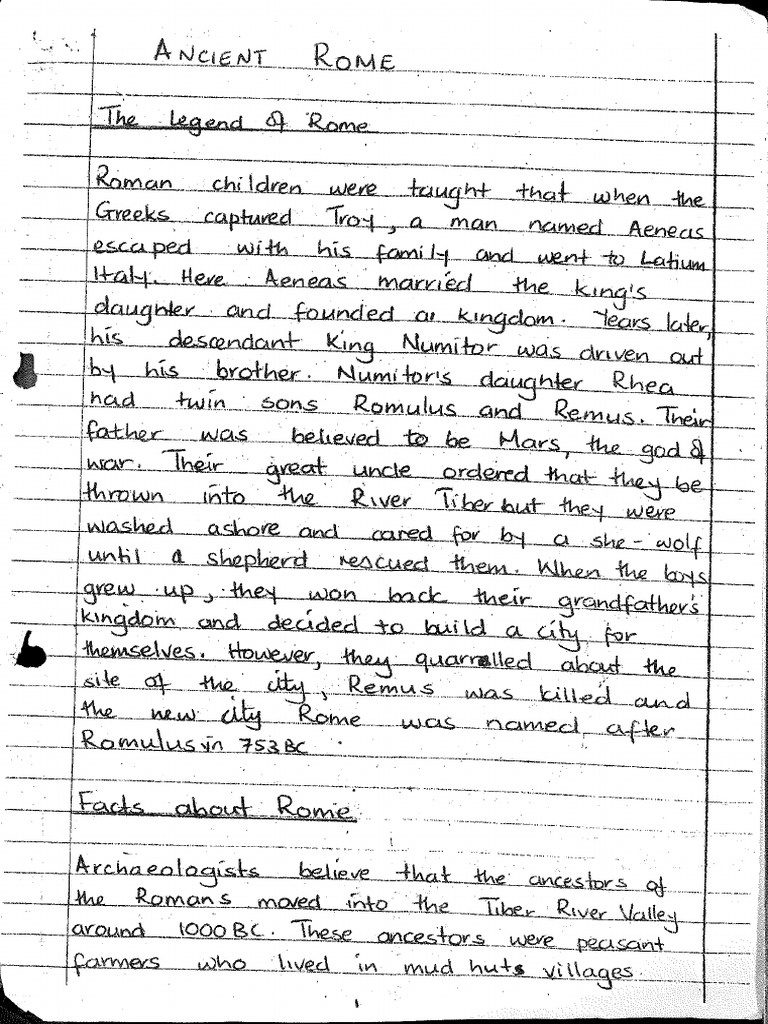 ANCIENT ROME
The legend of Rome
Roman children were taught that when the
Greeks captured Troy, a man named Aeneas
escaped with his family and went to Latium
Italy. Here Aeneas married the king's
daughter and founded a kingdom. Years later,
his descendant King Numitor was driven out
by his brother. Numitor's daughter Rhea
had twin sons Romulus and Remus. Their
father was believed to be Mars, the god of
war. Their great uncle ordered that they be
thrown into the River Tiber but they were
washed ashore and cared for by a she-wolf
until a shepherd rescued them. When the boys
grew up, they won back their grandfather's
kingdom and decided to build a city for
themselves. However, they quarrelled about the
site of the city, Remus was killed and
the new city Rome was named after
Romulus in 753 BC
Facts about Rome
Archaeologists believe that the ancestors of
the Romans moved into the Tiber River Valley
around 1000 BC. These ancestors were peasant
farmers who lived in mud huts villages.
1